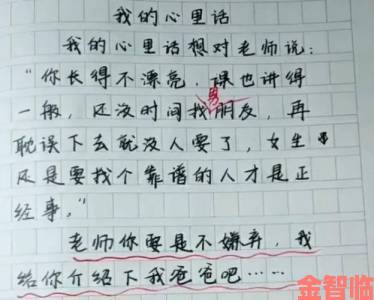 我的心里话
我的心里话想对老师说：
“你长得不漂亮，课也讲得
一般，还没时间找男朋友，再
耽误下去就没人要了，女生
还是要找个靠谱的人才是正
经事。”
老师你要是不嫌弃，我
给你介绍下我爸爸吧……
金智临